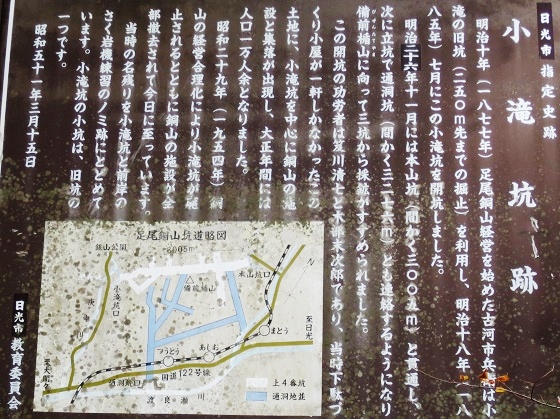 日光市指定史跡
小滝坑跡
明治十年(一八七七年)足尾銅山経営を始めた古河市兵衛は小
滝の旧坑(二五〇m先までの掘止)を利用し、明治十八年(一八
八五年)七月にこの小滝坑を開坑しました。
明治二十六年十一月には本山坑(間かく三〇〇五m)と貫通し、
次に立坑で通洞坑(間かく三二七六m)とも連絡するようになり
備前楯山に向って三坑から採鉱がすすめられました。
この開坑の功労者は笈川清七と木部末次郎であり、当時下駄づ
くり小屋が一軒しかなかったこの
土地に、小滝坑を中心に銅山の施
設と集落が出現し、大正年間には
人口一万人余となりました。
昭和二十九年(一九五四年)銅
山の経営合理化により小滝坑が廃
止されるとともに銅山の施設が全
部撤去されて今日に至っています。
当時の名残りを小滝坑と前岸の
さく岩機練習のノミ跡にとどめて
います。小滝坑の小坑は、旧坑の
一つです。
昭和五十一年三月十五日
日光市教育委員会
足尾銅山坑道略図
3005m
銀山公園
小滝坑口
庚申川
備前楯山
本山坑口
至日光
まとう
あしお
つうどう
通洞坑口
国道122号線
渡良瀬川
至大間々
上4番坑
通洞地並